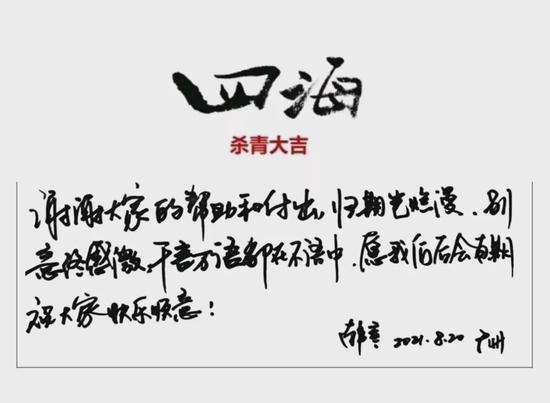 四海
杀青大吉
谢谢大家的帮助和付出,归期岂烂漫,别
意终感激,千言万语都在不语中.愿我们后会有期
祝大家快乐顺意!
韩寒 2021.8.20 广州